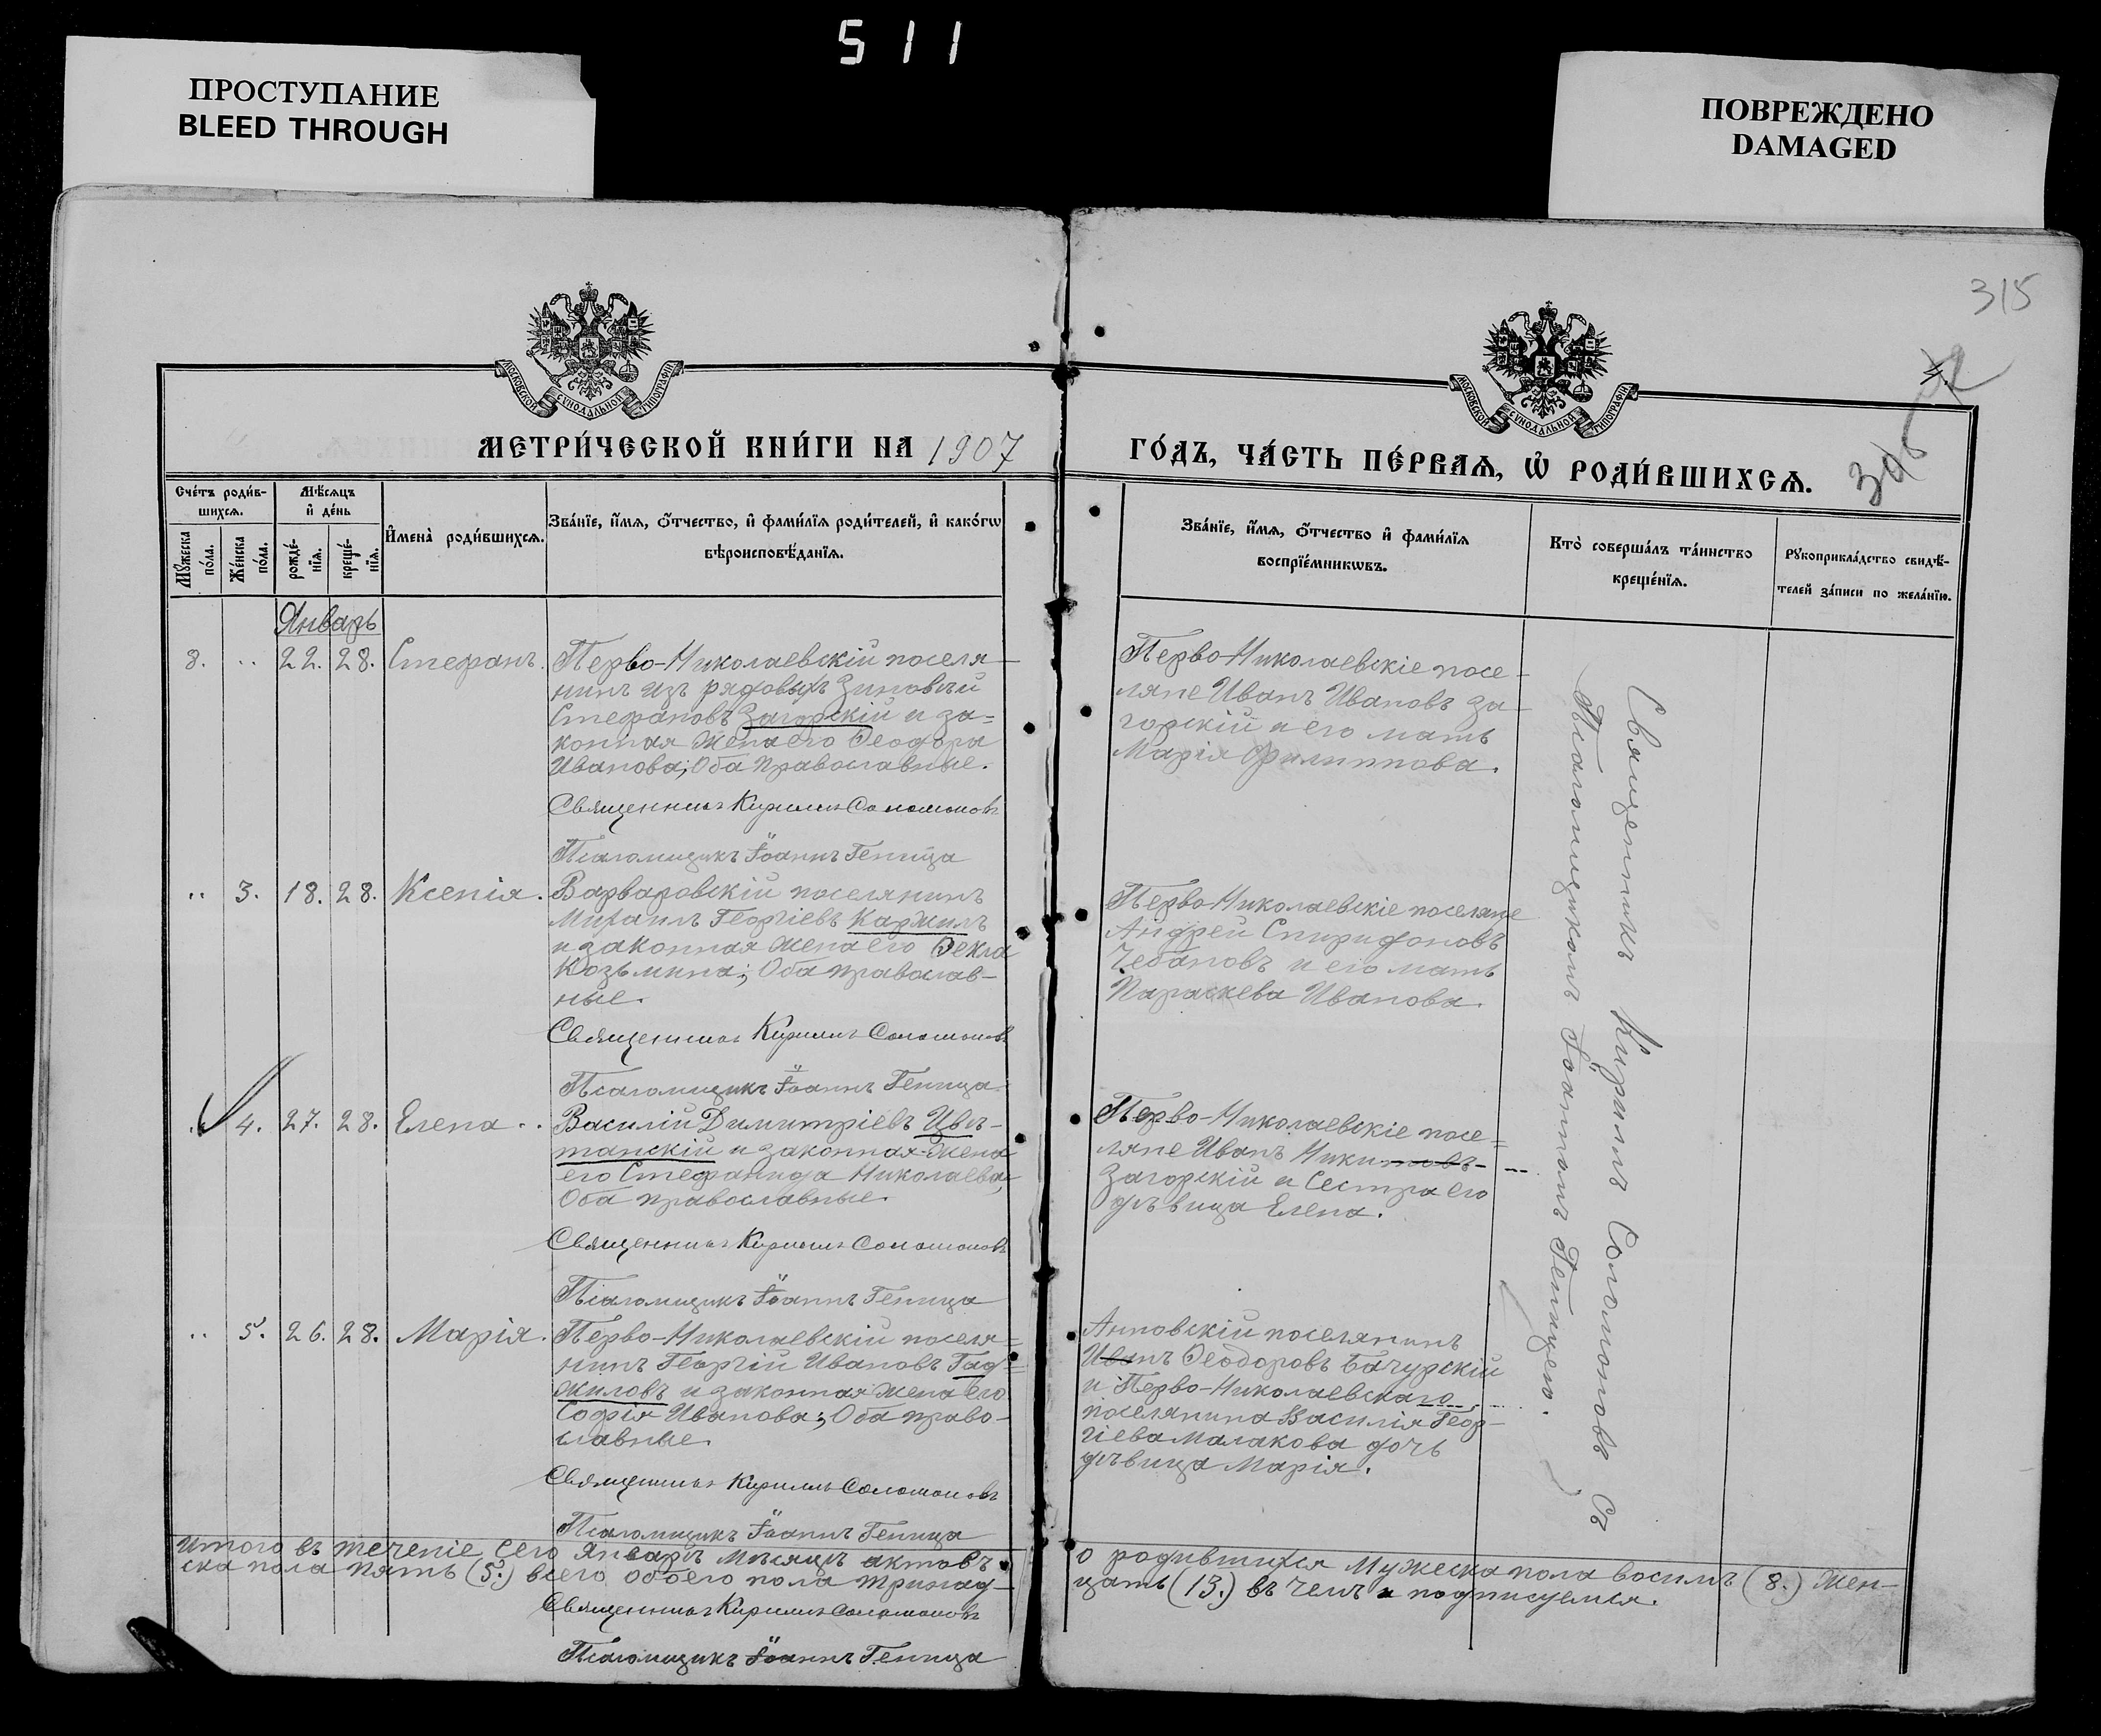 511
ПРОСТУПАНИЕ
BLEED THROUGH
ПОВРЕЖДЕНО
DAMAGED
315
МОСКОВСКОЙ СѴНОДАЛЬНОЙ ТИПОГРАФІИ
МОСКОВСКОЙ СѴНОДАЛЬНОЙ ТИПОГРАФІИ
МЕТРИ́ЧЕСКОЙ КНИ́ГИ НА 1907
ГО́ДЪ, ЧА́СТЬ ПЕ́РВАѦ, Ѡ҆ РОДИ́ВШИХСѦ.
Сче́тъ роди́вшихсѧ.
Мѣ́сѧцъ и҆ де́нь
Мꙋ́жеска по́ла.
Же́нска по́ла.
рожде́нїѧ.
креще́нїѧ.
И҆мена̀ роди́вшихсѧ.
Зва́нїе, и҆́мѧ, ѻ҆́тчество, и҆ фами́лїѧ роди́телей, и҆ како́гѡ
вѣроисповѣ́данїѧ.
Зва́нїе, и҆́мѧ, ѻ҆́тчество и҆ фами́лїѧ
воспрїе́мникѡвъ.
Кто̀ соверша́лъ та́инство
креще́нїѧ.
Рꙋкоприкла́дство свидѣ́-
телей за́писи по жела́нїю.
Январь
8. .. 22. 28. Стефанъ.
Перво-Николаевскій поселя-
нинъ изъ рядовыхъ Зиновій
Стефановъ Загорскій и за-
конная жена его Ѳеодора
Иванова; Оба православные.
Священникъ Кириллъ Соломоновъ
Псаломщикъ Іоаннъ Геница
Перво-Николаевскіе посе-
ляне Иванъ Ивановъ За-
горскій и его мать
Марія Филиппова.
.. 3. 18. 28. Ксенія.
Варваровскій поселянинъ
Михаилъ Георгіевъ Каржилъ
и законная жена его Ѳекла
Козьмина; Оба православ-
ные.
Священникъ Кириллъ Соломоновъ
Псаломщикъ Іоаннъ Геница
Перво-Николаевскіе поселяне
Андрей Спиридоновъ
Чебановъ и его мать
Параскева Иванова.
.. 4. 27. 28. Елена..
Василій Димитріевъ Цвѣ-
танскій и законная жена
его Стефанида Николаева,
Оба православные.
Священникъ Кириллъ Соломоновъ
Псаломщикъ Іоаннъ Геница
Перво-Николаевскіе посе-
ляне Иванъ Никитовъ
Загорскій и Сестра его
дѣвица Елена.
.. 5. 26. 28. Марія.
Перво-Николаевскій поселя-
нинъ Георгій Ивановъ Гад-
жиловъ и законная жена его
Софія Иванова; Оба право-
славные.
Священникъ Кириллъ Соломоновъ
Псаломщикъ Іоаннъ Геница
Анновскій поселянинъ
Иванъ Ѳеодоровъ Бачурскій
и Перво-Николаевскаго
поселянина Василія Геор-
гіева Малакова дочь
дѣвица Марія.
Священникъ Кириллъ Соломоновъ Съ
Псаломщикомъ Іоанномъ Геницею.
Итого въ теченіе сего Январь мѣсяцъ актовъ о родившихся Мужеска пола восимъ (8.) Жен-
ска пола пять (5.) всего обоего пола тринад-цать (13.) въ чемъ и подписуемся.
Священникъ Кириллъ Соломоновъ
Псаломщикъ Іоаннъ Геница